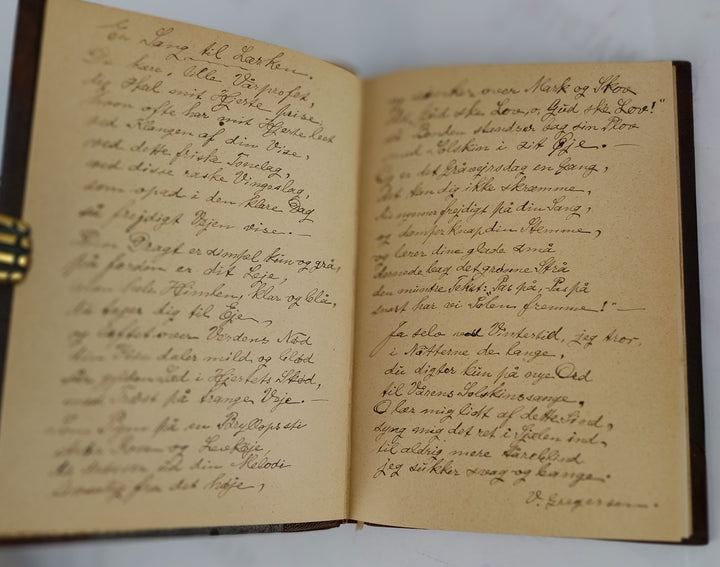 En Sang til Lærken.
Du kære, lille Vårprofet,
dig skal mit Hjerte prise,
hvor ofte har mit Hjerte leet
ved Klangen af din Vise,
ved dette friske Tonelag,
ved disse raske Vingeslag,
som opad i den klare Dag
så frejdigt Vejen vise. —
Din Dragt er simpel kun og grå,
på Jorden er dit Leje,
men hele Himlen, klar og blå,
du tager dig til Eje,
og løftet over Verdens Nød
din daler mild og blød
i Hjertets Stød,
med Trøst på trange Veje. —
Som Regn på en Bryllupssti
Rosen og Levkøje,
du ud din Melodi
fra det høje,
og over Mark og Skov
"Gud ske Lov, o, Gud ske Lov!"
Bonden standser ved sin Plov
med Solskin i sit Øje. —
Og er det Gråvejrsdag en Gang,
det kan dig ikke skræmme,
du nynner frejdigt på din Sang,
og dæmper knap din Stemme,
og lærer dine glade små
dernede bag det grønne Strå
den muntre Tekst: Pas på, Pas på
snart har vi Solen fremme!" —
Ja selv ved Vintertid, jeg tror,
i Nætterne de lange,
du digter kun på nye Ord
til Vårens Solskinssange,
O lær mig lidt af dette Sind,
syng mig det ret i Sjælen ind,
til aldrig mere tåreblind
jeg sukker svag og bange.
V. Gregersen.